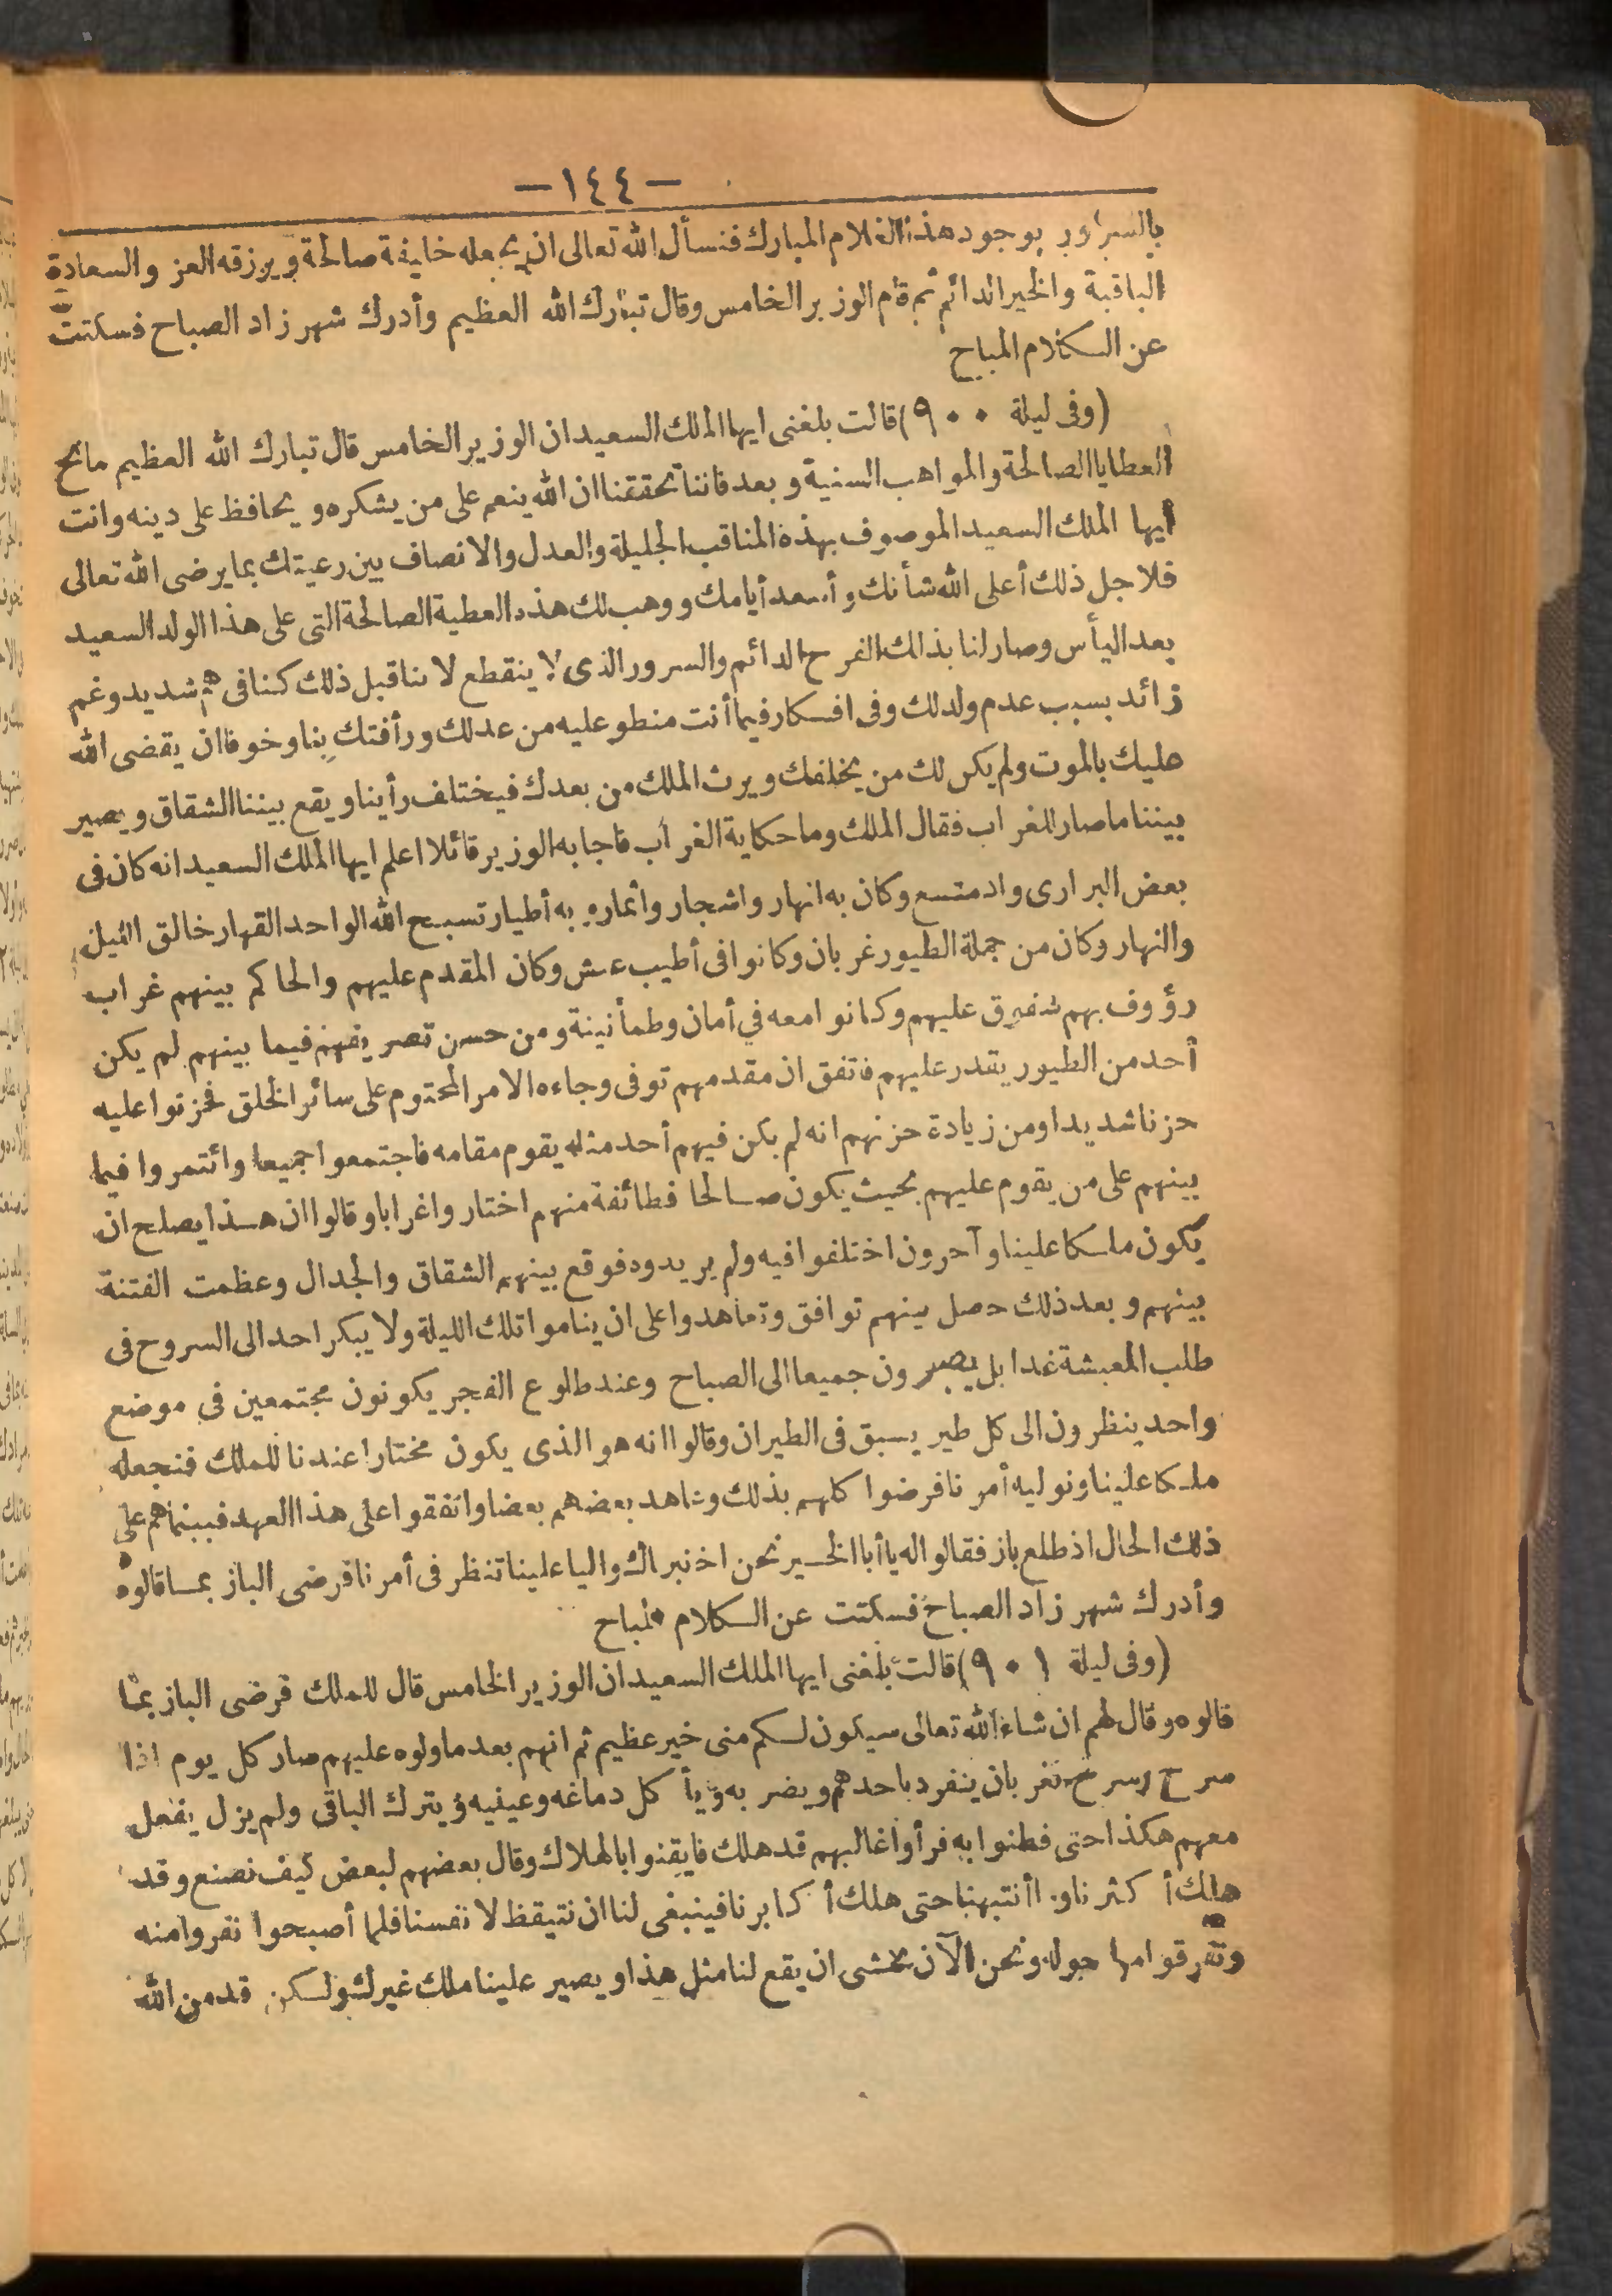 — ١٤٤ —
بالسرور بوجود هذا الغلام المبارك فنسأل الله تعالى ان يجعله خليفة صالحة ويرزقه العز والسعادة
الباقية والخير الدائم ثم قام الوزير الخامس وقال تبارك الله العظيم وأدرك شهر زاد الصباح فسكتت
عن الكلام المباح
(وفى ليلة ٩٠٠) قالت بلغنى ايها الملك السعيد ان الوزير الخامس قال تبارك الله العظيم مانح
العطايا الصالحة والمواهب السنية وبعد فاننا تحققنا ان الله ينعم على من يشكره ويحافظ على دينه وانت
ايها الملك السعيد الموصوف بهذه المناقب الجليلة والعدل والانصاف بين رعيتك بما يرضى الله تعالى
فلاجل ذلك أعلى الله شأنك وأسعد أيامك ووهب لك هذه العطية الصالحة التى على هذا الولد السعيد
بعد اليأس وصار لنا بذلك الفرح الدائم والسرور الذى لا ينقطع لاننا قبل ذلك كنا فى هم شديد وغم
زائد بسبب عدم ولد لك وفى افكار فيما أنت منطو عليه من عدلك ورأفتك بنا وخوفا ان يقضى الله
عليك بالموت ولم يكن لك من يخلفك ويرث الملك من بعدك فيختلف رأينا ويقع بيننا الشقاق ويصير
بيننا ما صار للغراب فقال الملك وما حكاية الغراب فاجابه الوزير قائلا اعلم ايها الملك السعيد انه كان فى
بعض البرارى واد متسع وكان به انهار واشجار وأثمار وبه أطيار تسبح الله الواحد القهار خالق الليل
والنهار وكان من جملة الطيور غربان وكانوا فى أطيب عيش وكان المقدم عليهم والحاكم بينهم غراب
رؤوف بهم شفيق عليهم وكانوا معه في أمان وطمأنينة ومن حسن تصريفهم فيما بينهم لم يكن
أحد من الطيور يقدر عليهم فاتفق ان مقدمهم توفى وجاءه الامر المحتوم على سائر الخلق فحزنوا عليه
حزنا شديدا ومن زيادة حزنهم انه لم يكن فيهم أحد مثله يقوم مقامه فاجتمعوا جميعا وائتمروا فيما
بينهم على من يقوم عليهم بحيث يكون صالحا فطائفة منهم اختاروا غرابا وقالوا ان هذا يصلح ان
يكون ملكا علينا وآخرون اختلفوا فيه ولم يريدوه فوقع بينهم الشقاق والجدال وعظمت الفتنة
بينهم وبعد ذلك حصل بينهم توافق وتعاهدوا على ان يناموا تلك الليلة ولا يبكر احد الى السروح فى
طلب المعيشة غدا بل يصبرون جميعا الى الصباح وعند طلوع الفجر يكونون مجتمعين فى موضع
واحد ينظرون الى كل طير يسبق فى الطيران وقالوا انه هو الذى يكون مختارا عندنا للملك فنجعله
ملكا علينا ونوليه أمرنا فرضوا كلهم بذلك وعاهد بعضهم بعضا واتفقوا على هذا العهد فبينما هم على
ذلك الحال اذ طلع باز فقالوا له يا أبا الخير نحن اخترناك واليا علينا تنظر فى أمرنا فرضى الباز بما قالوه
وأدرك شهر زاد الصباح فسكتت عن الكلام المباح
(وفى ليلة ٩٠١) قالت بلغنى ايها الملك السعيد ان الوزير الخامس قال للملك فرضى الباز بما
قالوه وقال لهم ان شاء الله تعالى سيكون لكم منى خير عظيم ثم انهم بعد ما ولوه عليهم صار كل يوم اذا
سرح وسرح الغربان ينفرد باحدهم ويضربه ويأكل دماغه وعينيه ويترك الباقى ولم يزل يفعل
معهم هكذا حتى فطنوا به فرأوا غالبهم قد هلك فايقنوا بالهلاك وقال بعضهم لبعض كيف نصنع وقد
هلك أكثرنا وما أنتبهنا حتى هلك أكابرنا فينبغى لنا ان نتيقظ لانفسنا فلما أصبحوا نفروا منه
وتفرقوا من حوله ونحن الآن نخشى ان يقع لنا مثل هذا ويصير علينا ملك غيرك ولكن قد من الله